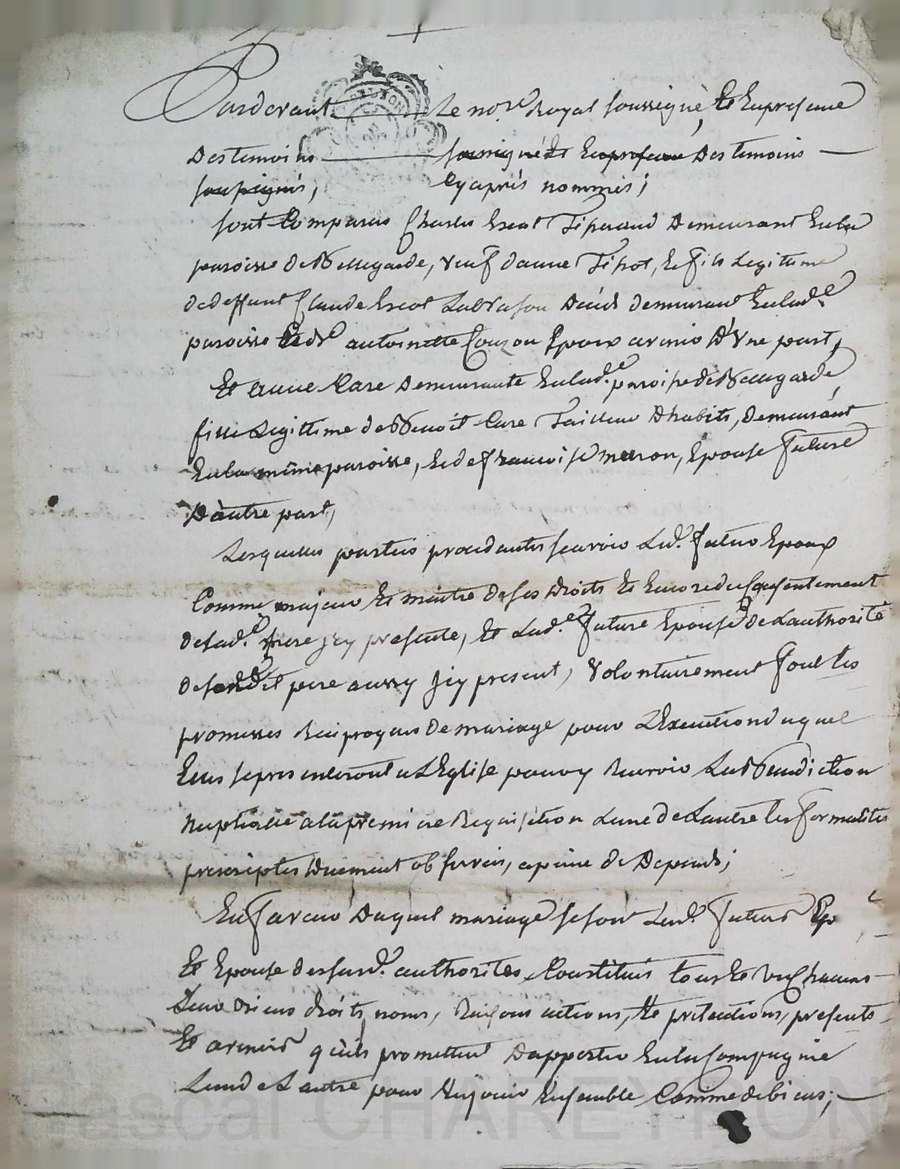 Pardevant Le nore Royal soussigné, Et En presance
Des temoins soussigné Et En presence Des temoins
soussignés, Cy après nommés;
sont Comparus Charles Escot Demeurant En la
paroisse de Bellegarde, veuf d'anne Tipot, & fils Legitime
de deffunt Claude Escot Demeurant En lade
paroisse & de antoinette Couzon Epoux avenir D'Vne part,
Et anne Care Demeurante En lade paroisse de Bellegarde
fille Legittime de Benoit Care Tailleur D'habits, Demeurant
En la même paroisse, & de francoise meron, Epouse future
D'autre part,
Lesquelles parties procedantes scavoir Led. futur Epoux
Comme majeur Et maitre de ses Droits Et Encore du Consentement
de sade mere jcy presente, Et Lade future Epouse de L'authorité
de sondit pere aussy jcy present, Volontairement font les
promesses Reciproques De mariage pour L'Execution duquel
Elles se presenteront a L'Eglise pour y Recevoir La Benediction
nuptialle a la premiere Requisition L'une de L'autre les formalites
prescriptes duement observées, a peine de Depends;
En faveur Duquel mariage se sont Led. futurs Ep
Et Epouse desurd. authorites Constitués tous Et Vn Chacuns
Leurs Biens droits, noms, Raisons actions, & pretentions, presents
Et avenir qu'ils promettent D'apporter En la Compagnie
L'un de L'autre pour En jouir Ensemble Comme de biens;
Pascal CHAREYRON